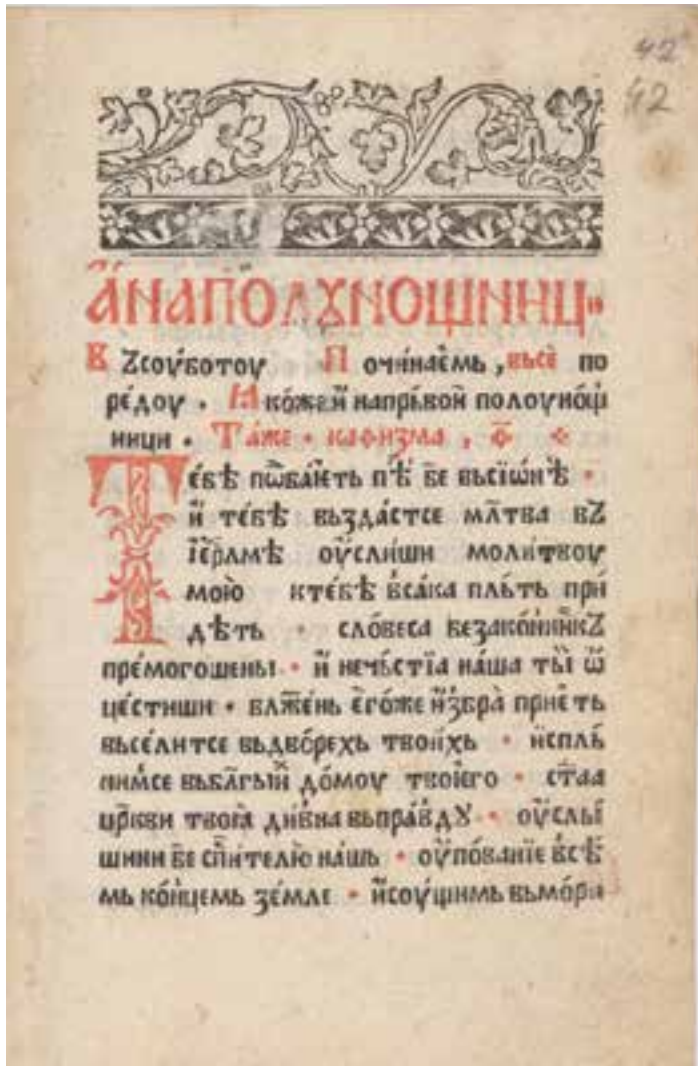 42
42
А҆НАПОЛꙊНОЩНИЦ
В Ꙁсоуботоу Починаемь, вьсѐ по
редоу · Ꙗкоже и҆ напрьвои полоуношт
ници · Таже · каѳизма, ѳ҃ ·
Тебѣ пѡⷣбаеть пⷭ҇ѣ бе҃ вьсїѡнѣ ·
и҆ тебѣ въздастсе мл҃тва вꙀ
Їер҃лмѣ оуслиши молитвоу
мою ктебѣ всака пльть при
дѣть · словеса безаконникꙀ
премогошены · и҆ нечьстїа наша ты ѿ
цестиши · блажень егоже и҆збра приеть
вьселитсе вьдворехь твоихь · испль
нимсе вьблгыи домоу твоиего · ст҃аа
цр҃кви твоꙗ дивна вьправдꙋ · оуслы
шини бе҃ сп҃ителю нашь · оупованїе всѣ
мь концемь земле · исоущимь вьмори